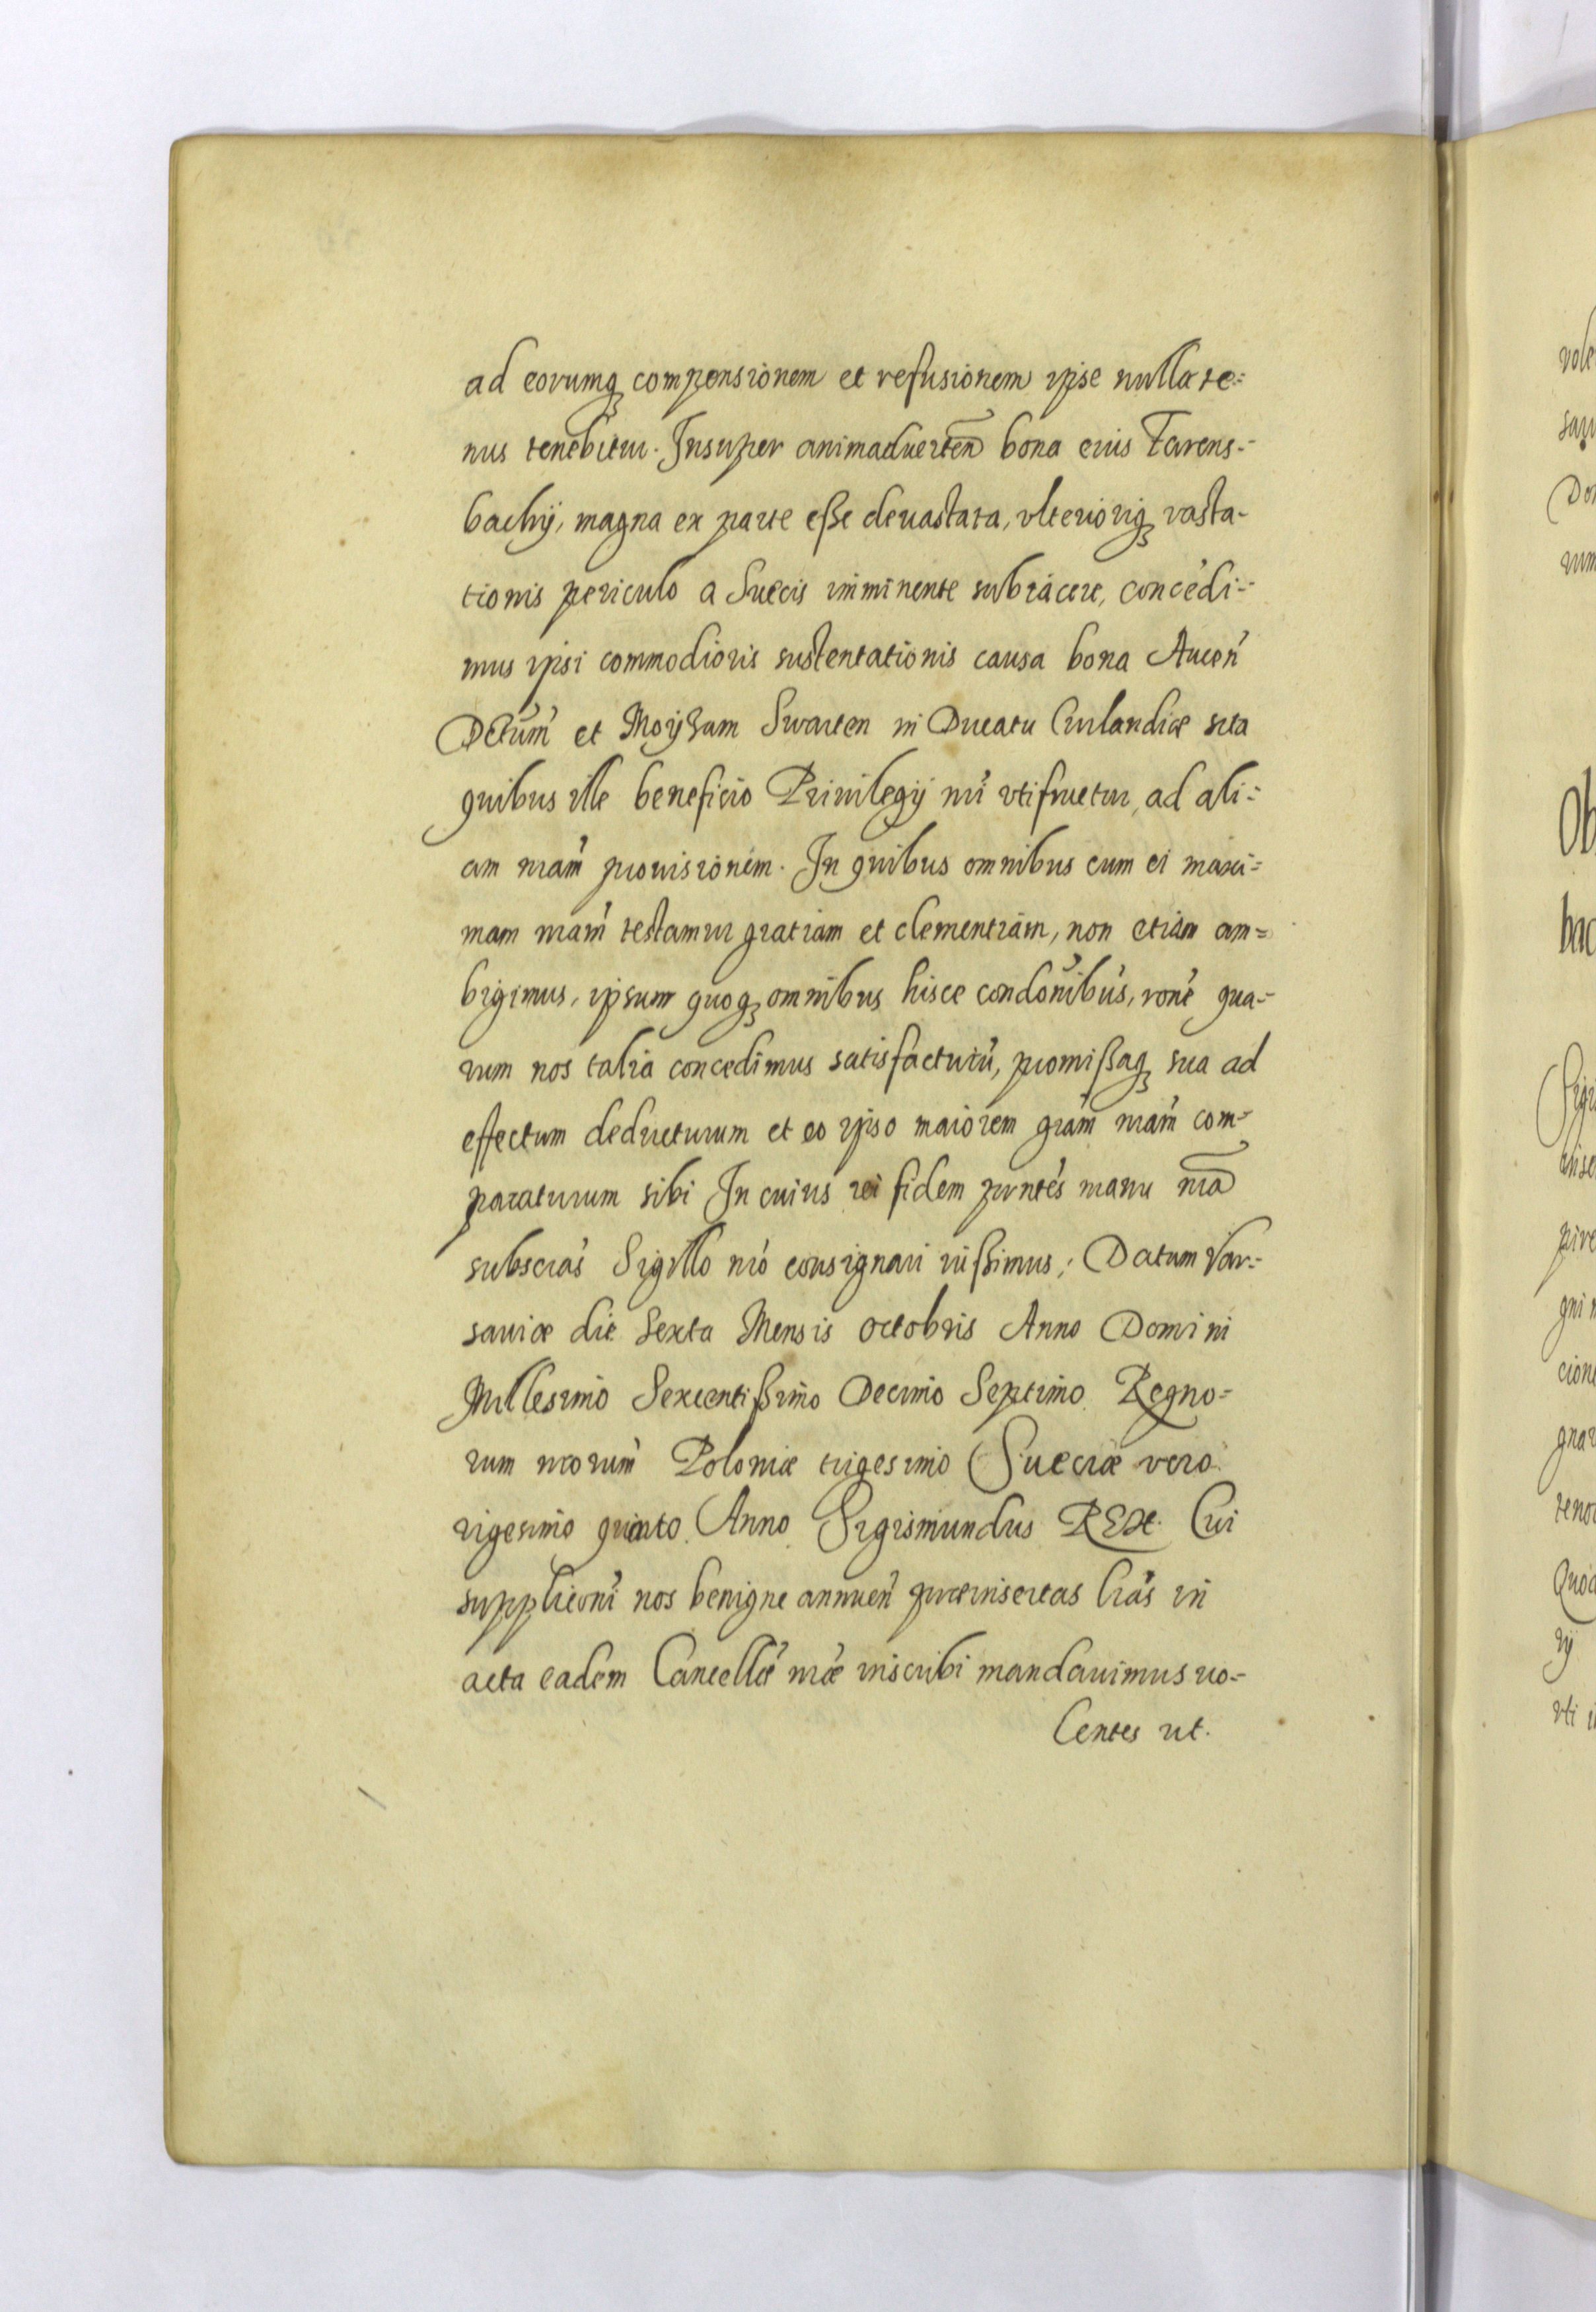 ad eorumq compensionem et refusionem ipse nullate:
nus tenebitur. Insuper animaduerten bona eius Farens:
bachij, magna ex parte esse deuastata, vlteriorisq vasta-
tionis periculo a Suecis imminente subiacere, concedi:
mus ipsi commodioris sustentationis causa bona Aucen
Detum et Moyssam Swarten in Ducatu Curlandiæ sita
quibus ille beneficio Priuilegij nri vtifruetur, ad ali:
am nram prouisionem. In quibus omnibus cum ei maxi:
mam nram testamur gratiam et clementiam, non etiam am=
bigimus, ipsum quoq omnibus hisce condonibus, rone qua-
rum nos talia concedimus satisfacturu, promissaq sua ad
effectum deducturum et eo ipso maiorem gram nram com-
paraturum sibi In cuius rei fidem pntes manu nra
subscras Sigillo nro consignari iussimus; Datum Var:
sauiæ die Sexta Mensis Octobris Anno Domini
Millesimo Sexcentissimo Decimo Septimo Regno=
rum nrorum Poloniæ trigesimo Sueciæ vero
vigesimo quinto Anno Sigismundus REX. Cui
supplicni nos benigne annuen præinsertas lras in
acta eadem Cancellæ nræ inscribi mandauimus uo-
lentes ut.